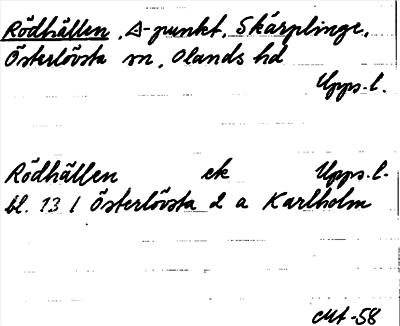 Rödhällen, △-punkt, Skärplinge,
Österlövsta sn, Olands hd
Upps.l.
Rödhällen ek Upps.l.
bl. 13 I Österlövsta 2 a Karlholm
Mt -58